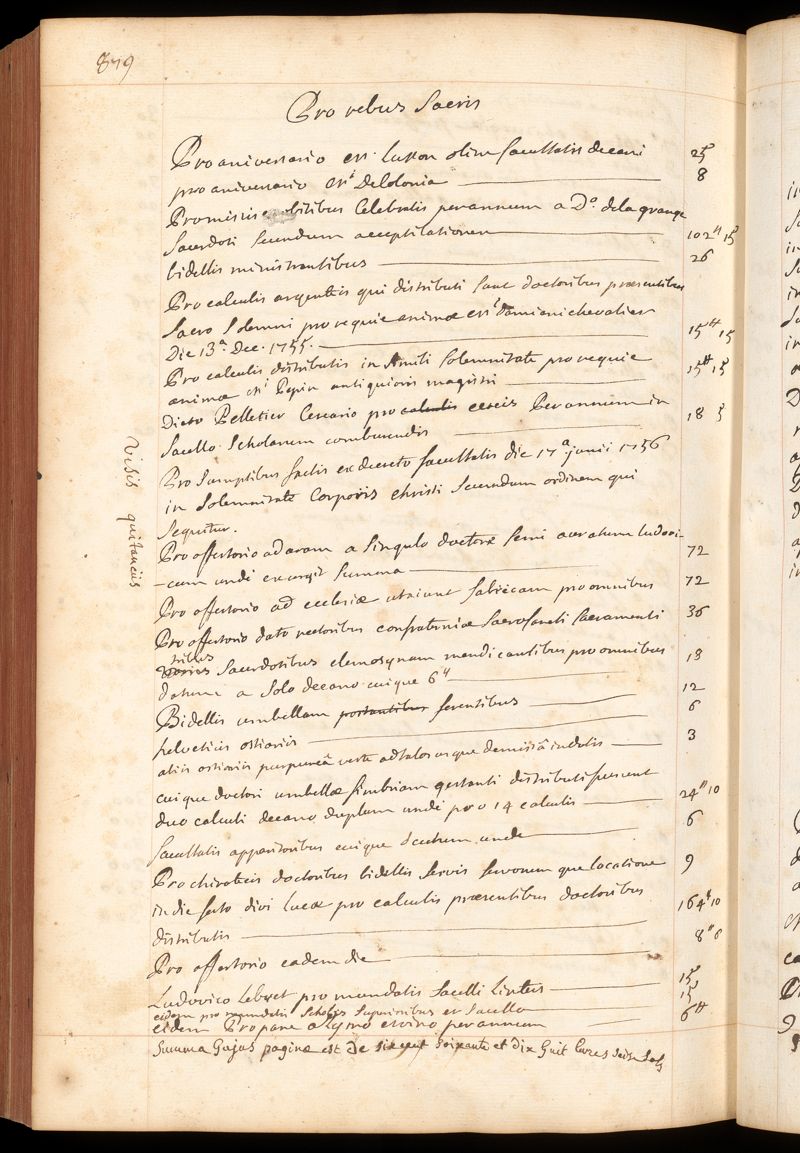 879
Pro rebus Sacris
Pro aniversario cri. Lusson olim facultatis decani 25
pro aniversario cri. Delolonia 8
Pro missis celebratis per annum a Do. de la grange
Sacerdoti Secundum acceptilationem 102tt 15
bidellis ministrantibus 26
Pro calculis argenteis qui distributi sunt doctoribus præsentibus
Sacro Solemni pro requie animæ cri. damiani chevalier
Die 13a. Dec. 1755. 15tt 15
Pro calculis distributis in simili Solemnitate pro requie
animæ cri. Pepin antiquioris magistri 15tt 15
Dicto Pelletier Cerario pro cereis Per annum in
Sacello Scholarum comburendis 18 5
Pro Sumptibus factis ex decreto facultatis die 17a. junii 1756
in Solemnitate Corporis christi Secundum ordinem qui
Sequitur.
Visis quitanciis
Pro offertorio ad aram a Singulo doctore Semi auratum ludovi-
-cum undi exurgit Summa 72
Pro offertorio ad ecclesiæ utriunt fabricam pro omnibus 72
Pro offertorio dato rectoribus confraterniæ Sacrosancti Sacramenti 36
tribus Sacerdotibus elemosynam mendicantibus pro omnibus
datum a Solo decano cuique 6tt 18
Bidellis umbellam portantibus ferentibus 12
helveticis ostiariis 6
aliis ostiariis purpureâ veste ad talos usque demissâ indutis 3
cuique doctori umbellæ fimbriam gestanti distributi fuerunt
duo calculi decano duplum undi pro 14 calculis 24tt 10
facultatis apparitoribus cuique Scutum unde 6
Pro chirotecis doctoribus bidellis servis Servorum que locatione 9
in die festo divi lucæ pro calculis præsentibus doctoribus
distributis 164tt 10
Pro offertorio eadem die 8tt 6
Ludovico Lebret pro mundatis Sacelli Linteis 15
eidem pro mundatis Scholis Superioribus et Sacello 15
eidem Pro pane azymo et vino per annum 6tt
Summa hujus paginæ est de six cent soixante et dix huit livres seise sols